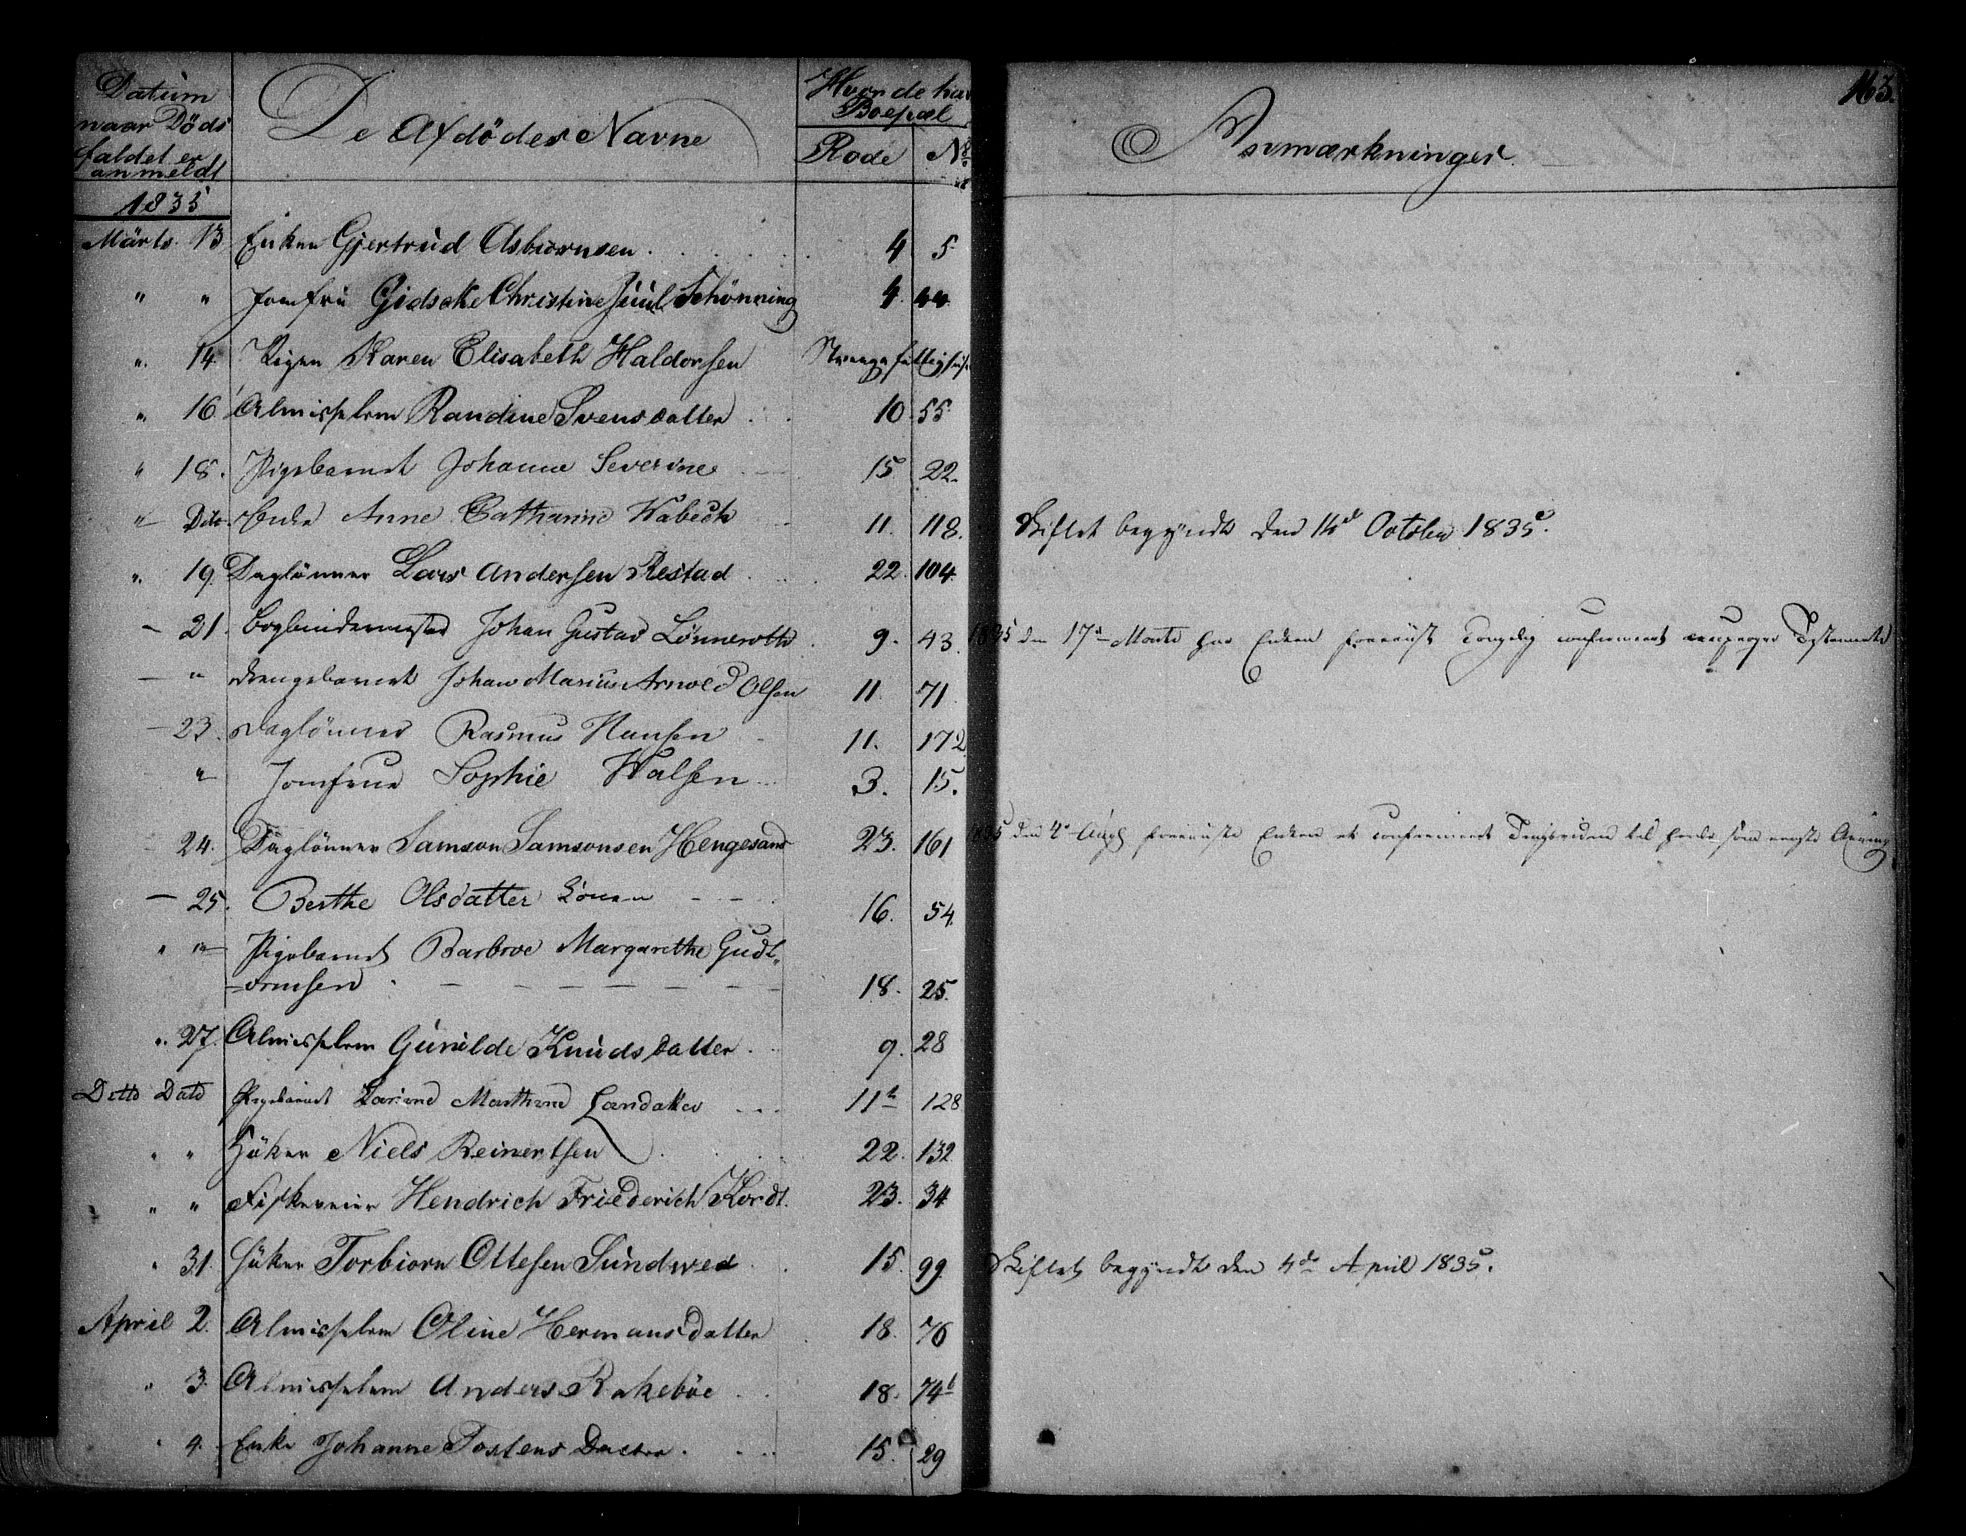 Datum
naar Døds
faldet er
anmeldt
De Afdødes Navne
Hvor de hav
Boepæl
Rode No
Anmærkninger
163.
1835
Märts. 13 Enken Gjertrud Asbiørnsen. 4 5
" " Jomfru Gidscke Christine Juul Schønning 4. 44
". 14 Pigen Karen Elisabeth Haldorsen Strangs fattighuus
" 16 Almisselem Randine Svensdatter 10 55
" 18. Pigebarnet Johanne Severine 15 22.
" Dito Enke Anne Catharine Wabech 11. 118. Skiftet begyndt den 14de October 1835.
". 19. Daglønner Lars Andersen Restad 22. 104
- 21. Bogbindermester Johan Gustav Lønneroth 9. 43. 1835 den 17de Marts har Enken foreviist Kongelig confirmeret Testamente
- " Drengebarnet Johan Marius Arnold Olsen 11. 71
- 23. Daglønner Rasmus Hansen 11. 172
" Jomfrue Sophie Walsen 3. 15.
24. Daglønner Samson Samsonsen Hengesand 23. 161 1835 den 4de Aug foreviiste Enken et confirmeret til som
- 25. Berthe Olsdatter Lønen 16. 54.
" " Pigebarnet Barbroe Margarethe Gudt„
-ormsen 18. 25.
". 27. Almisselem Gunilde Knudsdatter 9. 28
Ditto Dato Pigebarnet Marthine Landaker 11 b 128
" " Høker Niels Reinertsen 22. 132
" " Fiskeveier Hendrich Friederich Kordt. 23. 34
" 31. Høker Torbiørn Ottesen Sundwed 15. 99 Skiftet begyndt den 4de April 1835.
April 2. Almisselem Oline Hermansdatter 18. 76
" 3. Almisselem Anders Rakebøe 18. 74 b
" 4. Enke Johanne Tostensdatter. 15. 29